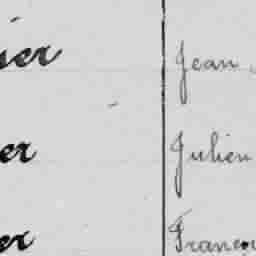 ier Jean
er Julien
er Franço